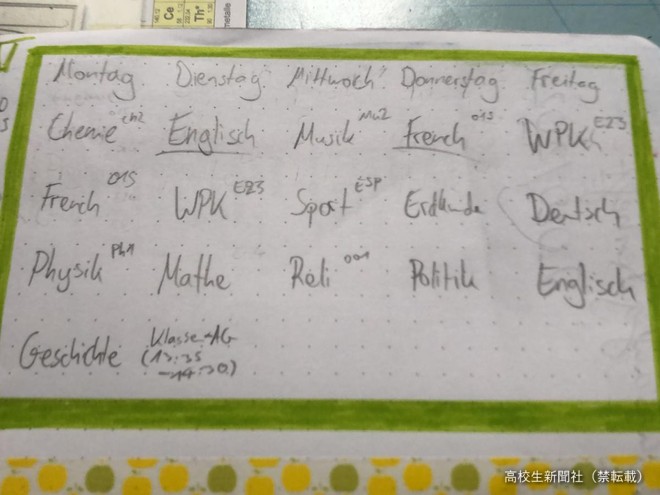 Montag Dienstag Mittwoch Donnerstag Freitag
Chemie Ch2 Englisch Musik Mu2 French 015 WPK E23
French 015 WPK E23 Sport ESP Erdkunde Deutsch
Physik Ph1 Mathe Reli 001 Politik Englisch
Geschichte Klasse-AG
(13:35
→14:30)
Ce
Th*
metalle
高校生新聞社（禁転載）